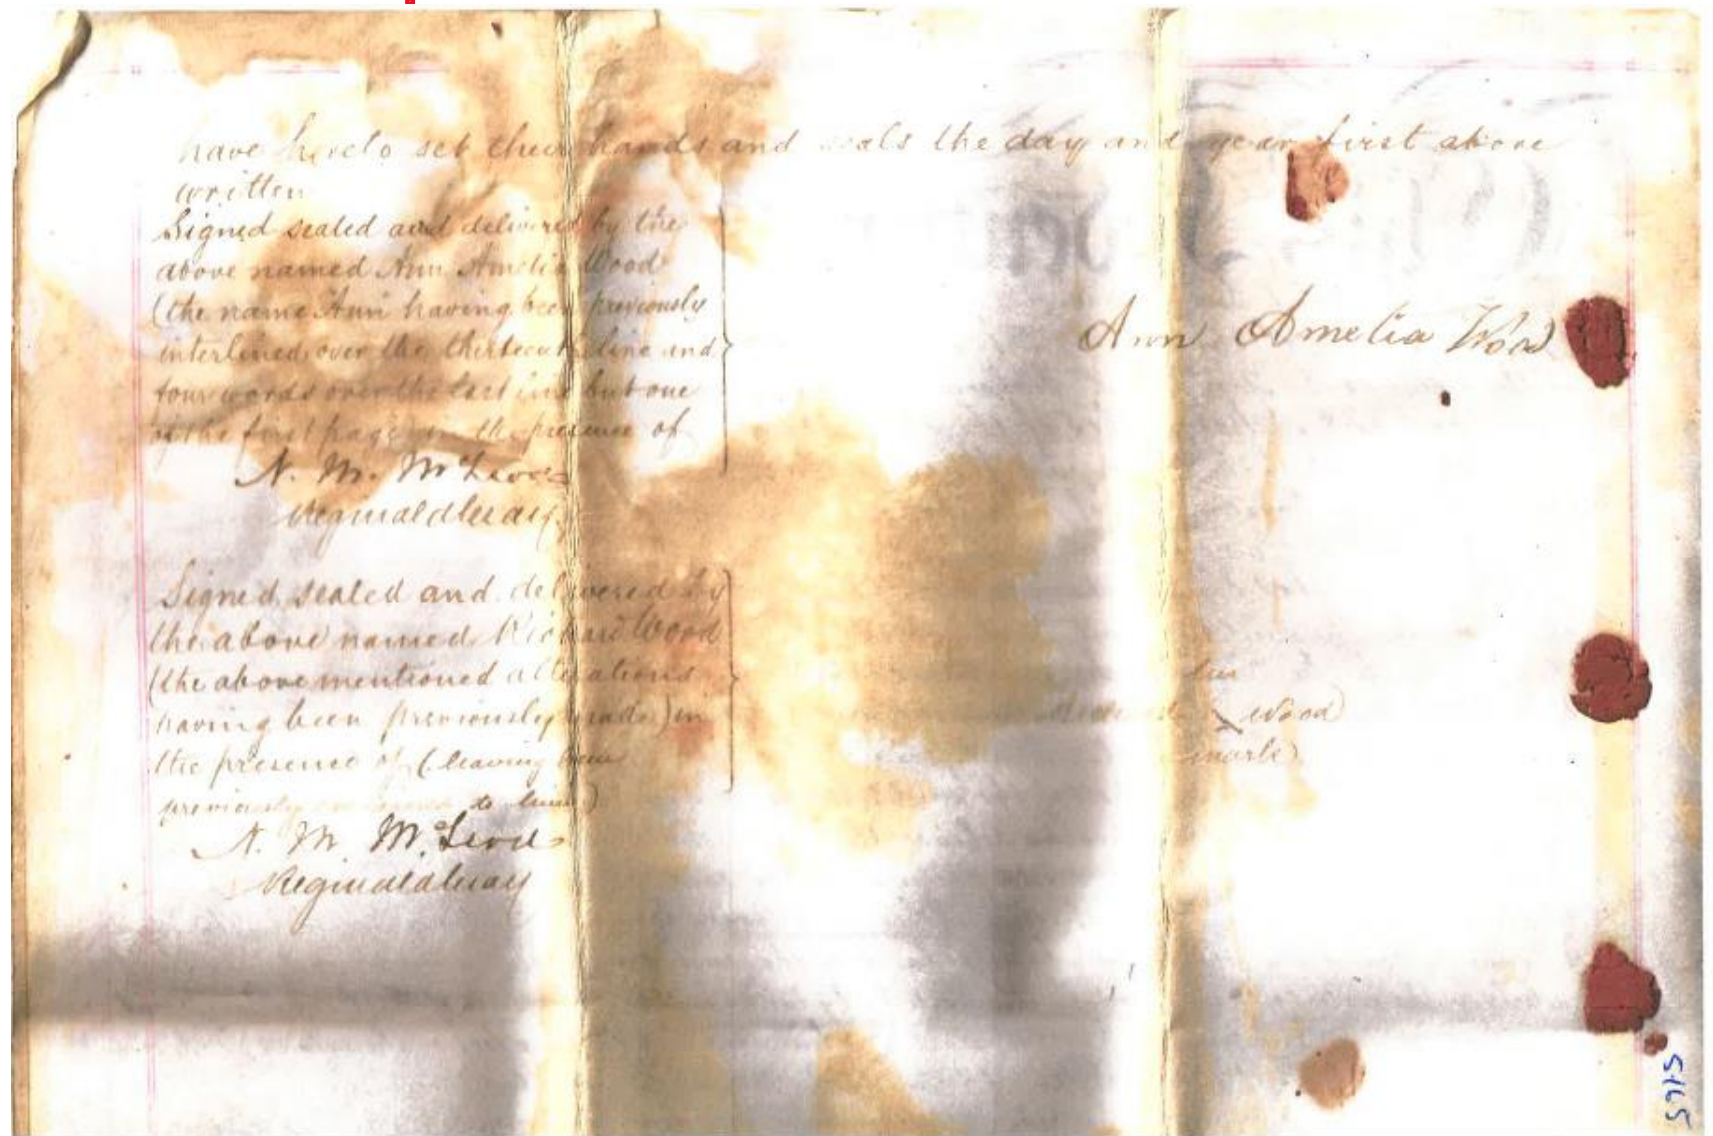 have hereto set their hands and seals the day and year first above
written
Signed sealed and delivered by the
above named Ann Amelia Wood
(the name Ann having been previously
interlined over the thirteenth line and
four words over the last line but one
of the first page in the presence of
Ann Amelia Wood
N. M. McLeod
Reginald
Signed sealed and delivered by
the above named Richard Wood
(the above mentioned alterations
having been previously made) in
the presence of (
previously to him)
his
Wood
mark
N. M. McLeod
Reginald